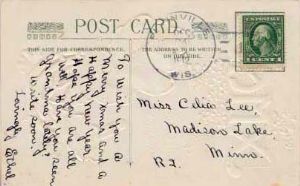 POST CARD
THIS SIDE FOR CORRESPONDENCE.
THE ADDRESS TO BE WRITTEN
ON THIS SIDE.
WIS.
To Wish you a
Merry Xmas and a
Happy New Year
Hope you are all
Well. Have you seen
Grandma lately?
Write soon,
Lovingly Ethel
Miss Celia Lee,
Madison Lake,
R1. Minn.